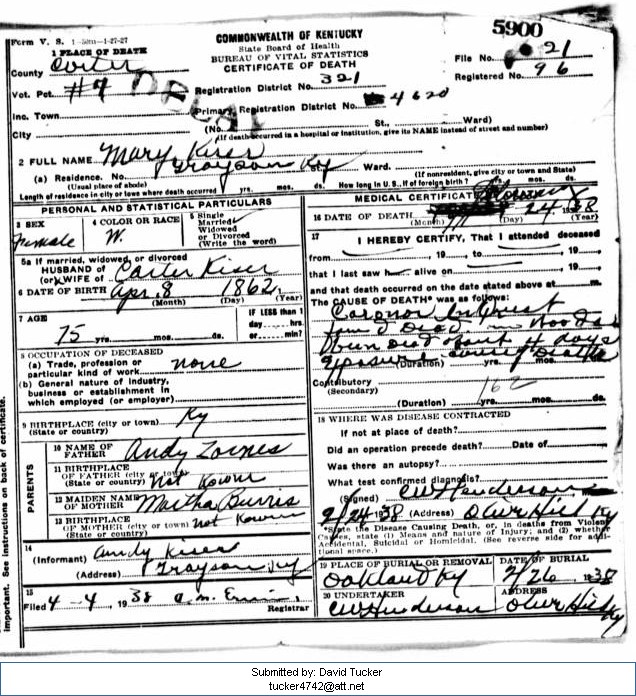 5900
Form V. S. 1-50m-1-27-27
COMMONWEALTH OF KENTUCKY
State Board of Health
BUREAU OF VITAL STATISTICS
CERTIFICATE OF DEATH
File No. 21
Registered No. 96
1 PLACE OF DEATH
County Carter
Vot. Pct. #7
DELAY
Registration District No. 321
Primary Registration District No. 4620
Inc. Town
City
(No. St., Ward)
(If death occurred in a hospital or institution, give its NAME instead of street and number)
2 FULL NAME Mary Kiser
(a) Residence. No. Grayson Ky St., Ward.
(Usual place of abode) (If nonresident, give city or town and State)
Length of residence in city or town where death occurred yrs. mos. ds. How long in U. S., if of foreign birth? yrs. mos. ds.
PERSONAL AND STATISTICAL PARTICULARS
3 SEX
Female
4 COLOR OR RACE
W.
5 Single
Married
Widowed
or Divorced
(Write the word)
5a If married, widowed, or divorced
HUSBAND of
(or) WIFE of Carter Kiser
6 DATE OF BIRTH Apr. 8 1862
(Month) (Day) (Year)
7 AGE
75 yrs. mos. ds.
IF LESS than 1
day hrs.
or min.?
8 OCCUPATION OF DECEASED
(a) Trade, profession or
particular kind of work none
(b) General nature of industry,
business or establishment in
which employed (or employer)
9 BIRTHPLACE (city or town) Ky
(State or country)
PARENTS
10 NAME OF
FATHER Andy Zornes
11 BIRTHPLACE
OF FATHER (city or town)
(State or country) Not Known
12 MAIDEN NAME
OF MOTHER Martha Burris
13 BIRTHPLACE
OF MOTHER (city or town)
(State or country) Not Known
14
(Informant) Andy Kiser
(Address) Grayson Ky
15
Filed 4-4, 1938 Registrar
MEDICAL CERTIFICATE
16 DATE OF DEATH 24 1938
(Month) (Day) (Year)
17 I HEREBY CERTIFY, That I attended deceased
from , 19 , to , 19 ,
that I last saw h alive on , 19 ,
and that death occurred on the date stated above at m.
The CAUSE OF DEATH* was as follows:
Coroner Inquest
found Dead in Woods
Been died about 4 days
Exposure causing Death
(Duration) yrs. mos. ds.
Contributory 162
(Secondary)
(Duration) yrs. mos. ds.
18 WHERE WAS DISEASE CONTRACTED
If not at place of death?
Did an operation precede death? Date of
Was there an autopsy?
What test confirmed diagnosis?
(Signed) CW Henderson
2/24 1938 (Address) Olive Hill Ky
*State the Disease Causing Death, or, in deaths from Violent
Causes, state (1) Means and nature of Injury; and (2) whether
Accidental, Suicidal or Homicidal. (See reverse side for addi-
tional space.)
19 PLACE OF BURIAL OR REMOVAL
Oakland Ky
DATE OF BURIAL
2/26, 1938
20 UNDERTAKER
CW Henderson
ADDRESS
Olive Hill Ky
important. See instructions on back of certificate.
Submitted by: David Tucker
tucker4742@att.net